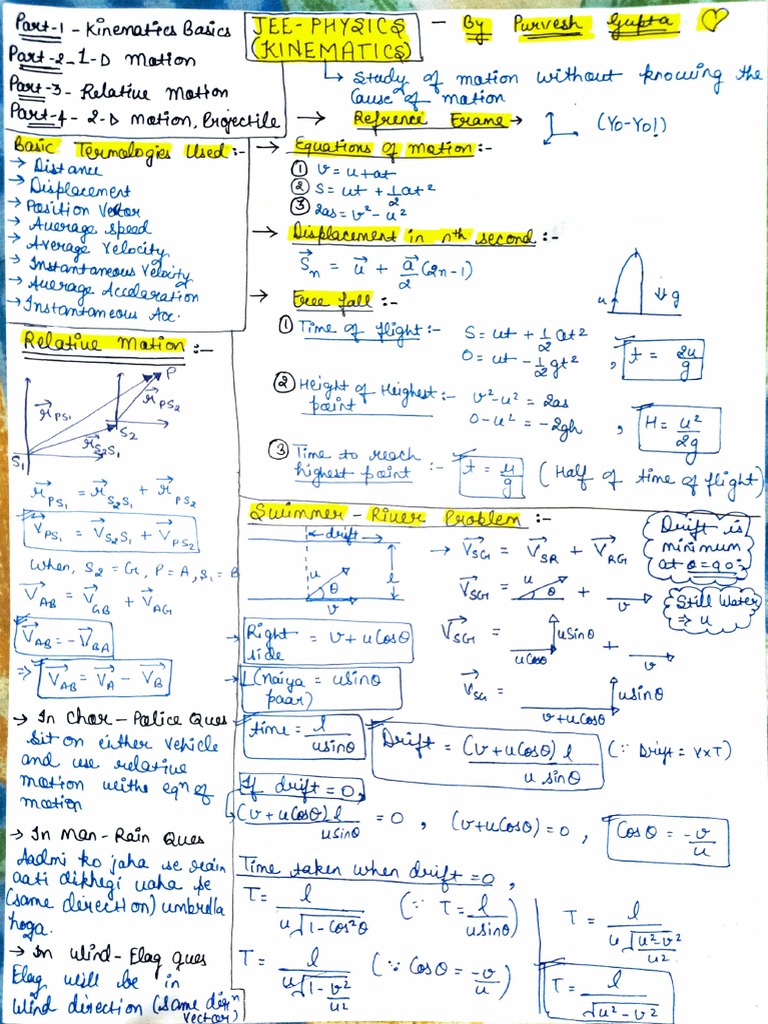 Part-1 - Kinematics Basics
Part-2 - 1-D Motion
Part-3 - Relative Motion
Part-4 - 2-D Motion, Projectile
JEE-PHYSICS
(KINEMATICS)
- By Purvesh Gupta ♡
↳ Study of motion without knowing the
Cause of motion
→ Refrence Frame → (Yo-Yo!)
Basic Termologies Used :-
→ Distance
→ Displacement
→ Position Vector
→ Average speed
→ Average Velocity
→ Instantaneous Velocity
→ Average Accelaration
→ Instantaneous Acc.
→ Equations of motion :-
① v = u + at
② S = ut + 1/2 at²
③ 2as = v² - u²
→ Displacement in nth second :-
S⃗n = u⃗ + a⃗/2 (2n-1)
→ Free fall :-
u ↓ g
① Time of flight :- S = ut + 1/2 at²
0 = ut - 1/2 gt² , t = 2u/g
② Height of Highest :- v² - u² = 2as
point 0 - u² = -2gh , H = u²/2g
③ Time to reach
highest point :- t = u/g (Half of time of flight)
Relative Motion :-
P
r⃗PS₁ r⃗PS₂
S₂
r⃗S₂S₁
S₁
r⃗PS₁ = r⃗S₂S₁ + r⃗PS₂
V⃗PS₁ = V⃗S₂S₁ + V⃗PS₂
When, S₂ = G, P = A, S₁ = B
V⃗AB = V⃗GB + V⃗AG
V⃗AB = -V⃗BA
⇒ V⃗AB = V⃗A - V⃗B
→ In Chor-Police Ques
Sit on either vehicle
and use relative
motion withe eqn of
motion
→ In Man-Rain Ques
Aadmi ko jaha se rain
aati dikhegi vaha pe
(same direction) umbrella
hoga.
→ In Wind-Flag Ques
Flag will be in
Wind direction (same dirn
vector)
Swimmer - River Problem :-
← drift →
u θ l
v
→ V⃗SG = V⃗SR + V⃗RG
V⃗SG = u θ + v
V⃗SG = u cosθ u sinθ + v
V⃗SG = v + u cosθ u sinθ
Drift is
minimum
at θ = 90°
Still Water
⇒ u
Right
side = v + u cosθ
L (naiya = u sinθ
paar)
time = l/u sinθ
Drift = (v + u cosθ) l / u sinθ (∵ Drift = V×T)
If drift = 0,
(v + u cosθ) l / u sinθ = 0 , (v + u cosθ) = 0 , Cosθ = -v/u
Time taken when drift = 0,
T = l / u√1-cos²θ (∵ T = l/u sinθ)
T = l / u√1 - v²/u² (∵ Cosθ = -v/u)
T = l / u√u²-v²/u²
T = l / √u²-v²